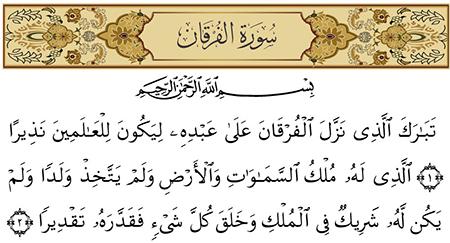 سُورَةُ الْفُرْقَانِ
بِسْمِ اللَّهِ الرَّحْمَٰنِ الرَّحِيمِ
تَبَارَكَ ٱلَّذِى نَزَّلَ ٱلْفُرْقَانَ عَلَىٰ عَبْدِهِۦ لِيَكُونَ لِلْعَـٰلَمِينَ نَذِيرًا
﴿١﴾ ٱلَّذِى لَهُۥ مُلْكُ ٱلسَّمَـٰوَٰتِ وَٱلْأَرْضِ وَلَمْ يَتَّخِذْ وَلَدًا وَلَمْ
يَكُن لَّهُۥ شَرِيكٌ فِى ٱلْمُلْكِ وَخَلَقَ كُلَّ شَىْءٍ فَقَدَّرَهُۥ تَقْدِيرًا ﴿٢﴾